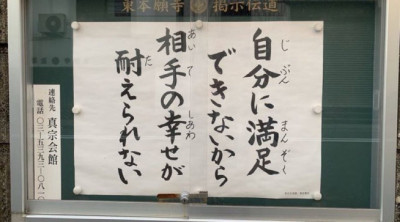 東本願寺 掲示伝道
自分に満足
じぶん まんぞく
できないから
相手の幸せが
あいて しあわ
耐えられない
た
連絡先 真宗会館